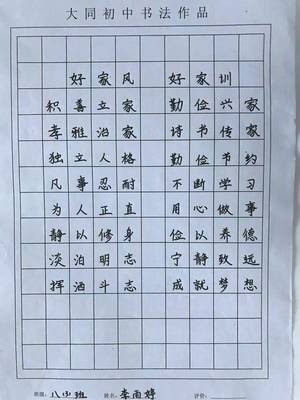 大同初中书法作品
好家风 好家训
积善立家 勤俭兴家
孝雅治家 诗书传家
独立人格 勤俭节约
凡事忍耐 不断学习
为人正直 用心做事
静以修身 俭以养德
淡泊明志 宁静致远
挥洒斗志 成就梦想
班级: 八(3)班 姓名: 李雨婷 评价: